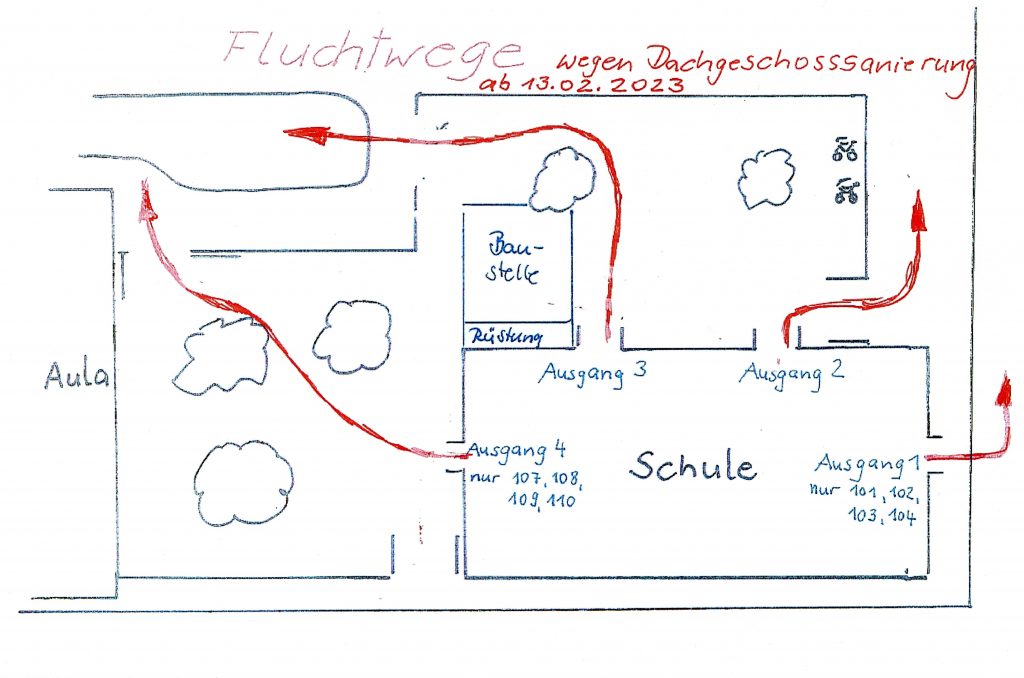 Fluchtwege wegen Dachgeschosssanierung
ab 13.02.2023
Bau-
stelle
Rüstung
Aula
Ausgang 3
Ausgang 2
Ausgang 4
nur 107, 108,
109, 110
Schule
Ausgang 1
nur 101, 102,
103, 104